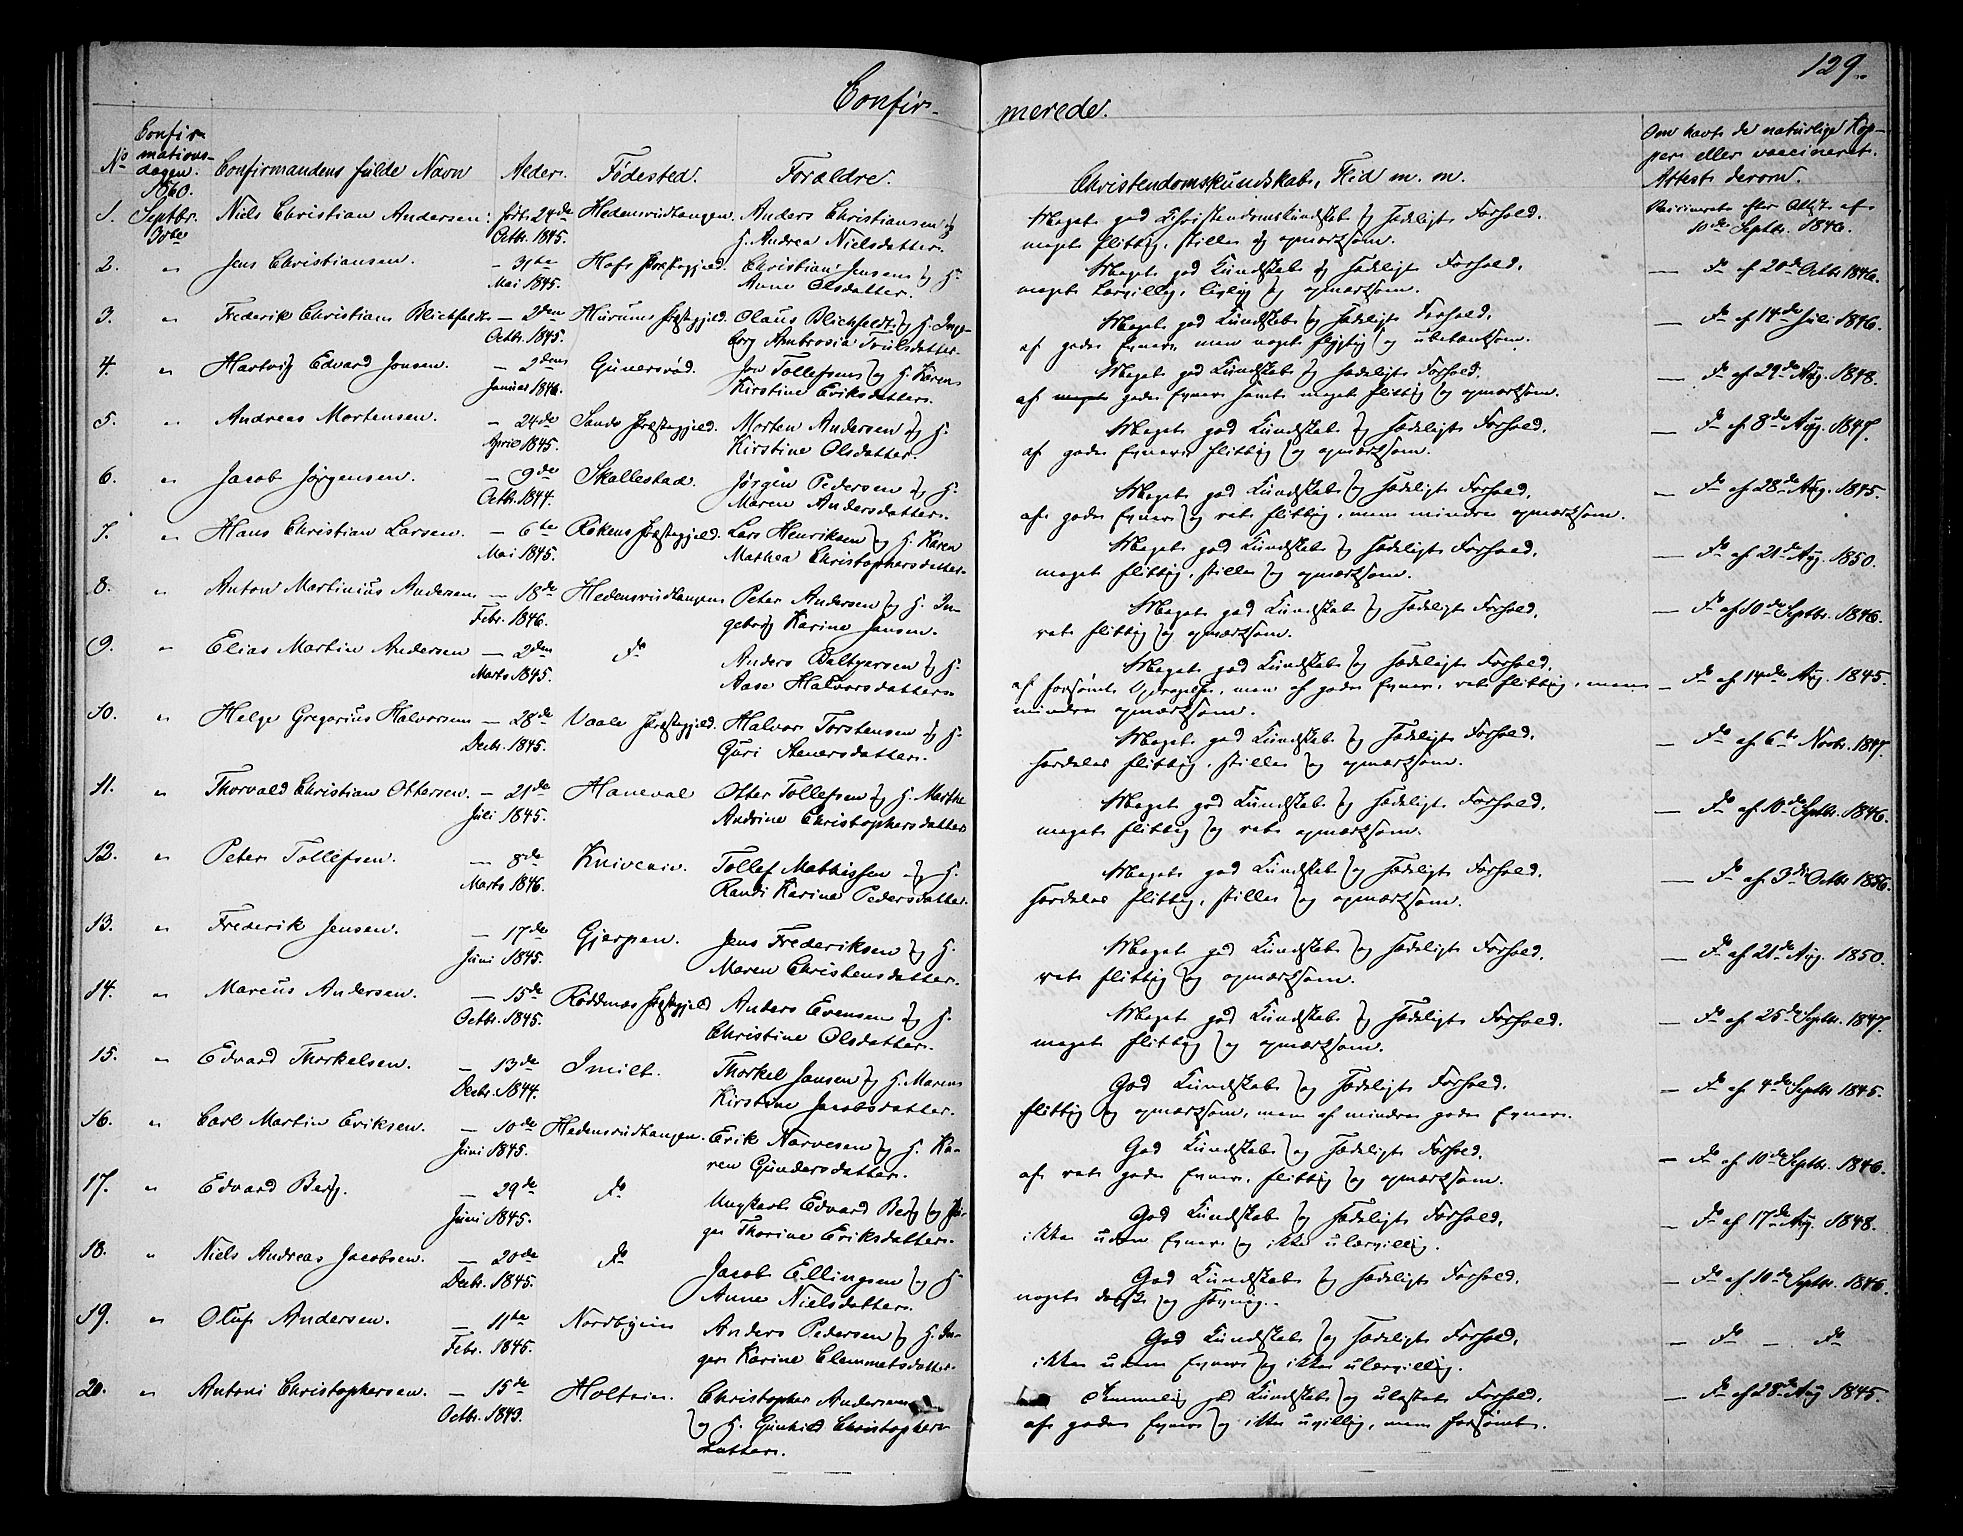 129.
Confir-
merede.
No
Confir-
mations-
dagen.
1860.
Confirmandens fulde Navn
Alder.
Födested.
Forældre.
Christendomskundskab, Flid m. m.
Om havt de naturlige Kop-
per eller vaccineret.
Attest derom.
1. Septbr. Niels Christian Andersen. født 24de Hedensrudtangen. Anders Christiansen og
30te Octb. 1845. H. Andrea Nielsdatter.
Meget god Christendomskundskab og sædeligt Forhold.
meget flittig, stille og opmærksom.
Vaccineret efter Attest af
10de Septbr. 1846.
2. " Jens Christiansen. — 31te Hofs Præstegjeld. Christian Jensen og H.
Mai 1845. Anne Olsdatter.
Meget god Kundskab og sædeligt Forhold.
meget lærvillig, livlig og opmærksom.
— Do af 20de Octb 1846.
3. " Frederik Christian Blichfeldt — 2den Hurums Præstegjeld. Olaus Blichfeldt og H. Inge-
Octb. 1845. borg Ambrosia Truls datter.
Meget god Kundskab og sædeligt Forhold.
af gode Evner men noget flygtig og ubetænksom.
— Do af 14de Juli 1846.
4. " Hartvig Edvard Jonsen. — 2den Gunersrød. Jon Tollefsen og H. Karen
Januar 1846. Kirstine Eriksdatter.
Meget god Kundskab og sædeligt Forhold.
af meget gode Evner samt meget flittig og opmærksom.
— Do af 29de Aug. 1848.
5. " Andreas Mortensen. — 24de Sands Præstegjeld. Morten Andersen og H.
April 1845. Kirstine Olsdatter.
Meget god Kundskab og sædeligt Forhold.
af gode Evner flittig og opmærksom.
— Do af 8de Aug. 1847.
6. " Jacob Jørgensen. — 9de Skallestad. Jørgen Pedersen og H.
Octb. 1844. Maren Andersdatter.
Meget god Kundskab og sædeligt Forhold.
af gode Evner og ret flittig, men mindre opmærksom.
— Do af 28de Aug. 1845.
7. " Hans Christian Larsen. — 6te Røkens Præstegjeld. Lars Henriksen og H. Karen
Mai 1845. Mathea Christophersdatter.
Meget god Kundskab og sædeligt Forhold.
meget flittig, stille og opmærksom.
— Do af 21de Aug. 1850.
8. " Anton Martinius Andersen — 18de Hedensrudtangen Peter Andersen og H. In-
Febr. 1846. geborg Karine Jensen.
Meget god Kundskab og sædeligt Forhold.
ret flittig og opmærksom.
— Do af 10de Septbr. 1846.
9. " Elias Martin Andersen — 2den Do Anders Baltzersen og H.
Marts 1845. Aase Halvorsdatter.
Meget god Kundskab og sædeligt Forhold.
af forsømt Opdragelse, men af gode Evner, ret flittig, men
mindre opmærksom.
— Do af 14de Aug. 1845.
10. " Helge Gregarius Halvorsen — 28de Vaale Præstegjeld. Halvor Torstensen og H.
Decb. 1845. Guri Stenersdatter.
Meget god Kundskab og sædeligt Forhold.
særdeles flittig, stille og opmærksom.
— Do af 6te Novbr. 1847.
11. " Thorvald Christian Ottersen. — 21de Haneval Otter Tollefsen og H. Marthe
Juli 1845. Andrine Christophersdatter
Meget god Kundskab og sædeligt Forhold.
meget flittig og ret opmærksom.
— Do af 10de Septbr. 1846.
12. " Peter Tollefsen. — 8de Tollef Mathissen og H.
Marts 1846. Randi Karine Pedersdatter.
Meget god Kundskab og sædeligt Forhold.
særdeles flittig, stille og opmærksom.
— Do af 3de Octbr 1856.
13. " Frederik Jensen. — 17de Gjerpen. Jens Frederiksen og H.
Juni 1845. Maren Christensdatter.
Meget god Kundskab og sædeligt Forhold.
ret flittig og opmærksom.
— Do af 21de Aug. 1850.
14. " Marcus Andersen. — 15de Røddenæs Præstegjeld Anders Evensen og H.
Octbr. 1845. Christine Olsdatter.
Meget god Kundskab og sædeligt Forhold.
meget flittig og opmærksom.
— Do af 25de Septbr. 1847.
15. " Edvard Thorkelsen. — 13de Thorkel Jansen og H. Maren
Decbr. 1844. Kirstine Jacobsdatter.
God Kundskab og sædeligt Forhold.
flittig og opmærksom, men af mindre gode Evner.
— Do af 4de Septbr 1845.
16. " Carl Martin Eriksen. — 10de Hedensrudtangen. Erik Narvesen og H. Ka-
Juni 1845. ren Gundersdatter.
God Kundskab og sædeligt Forhold.
af ret gode Evner, flittig og opmærksom.
— Do af 10de Septbr. 1846.
17. " Edvard Berg. — 29de Do Ungkarl Edvard Berg og Pi-
Juni 1845. ge Thorine Eriksdatter.
God Kundskab og sædeligt Forhold.
ikke uden Evner og ikke ulærvillig.
— Do af 17de Aug. 1848.
18. " Niels Andreas Jacobsen. — 20de Do Jacob Ellingsen og H.
Decbr. 1845. Anne Nielsdatter.
God Kundskab og sædeligt Forhold.
noget dorsk og
— Do af 10de Septbr. 1846.
19. " Oluf Andersen. — 11te Nordbyen Anders Pedersen og H. In-
Febr. 1845. ger Karine Clemmetsdatter.
God Kundskab og sædeligt Forhold.
ikke uden Evner og ikke ulærvillig.
— Do — Do
20. " Antoni Christophersen. — 15de Holtein. Christopher Andersen
Octbr. 1843. og H. Gunhild Christophers-
datter.
Temmelig god Kundskab og ulastet Forhold.
af gode Evner og ikke uvillig, men forsømt.
— Do af 28de Aug 1845.